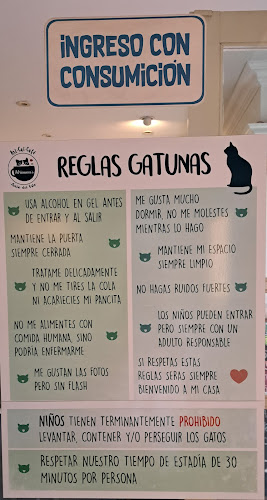 INGRESO CON
CONSUMICIÓN
REGLAS GATUNAS
USA ALCOHOL EN GEL ANTES
DE ENTRAR Y AL SALIR
MANTIENE LA PUERTA
SIEMPRE CERRADA
TRATAME DELICADAMENTE
Y NO ME TIRES LA COLA
NI ACARICIES MI PANCITA
NO ME ALIMENTES CON
COMIDA HUMANA, SINO
PODRÍA ENFERMARME
ME GUSTAN LAS FOTOS
PERO SIN FLASH
ME GUSTA MUCHO
DORMIR, NO ME MOLESTES
MIENTRAS LO HAGO
MANTIENE MI ESPACIO
SIEMPRE LIMPIO
NO HAGAS RUIDOS FUERTES
LOS NIÑOS PUEDEN ENTRAR
PERO SIEMPRE CON UN
ADULTO RESPONSABLE
SI RESPETAS ESTAS
REGLAS SERÁS SIEMPRE
BIENVENIDO A MI CASA
NIÑOS TIENEN TERMINANTEMENTE PROHIBIDO
LEVANTAR, CONTENER Y/O PERSEGUIR LOS GATOS
RESPETAR NUESTRO TIEMPO DE ESTADÍA DE 30
MINUTOS POR PERSONA